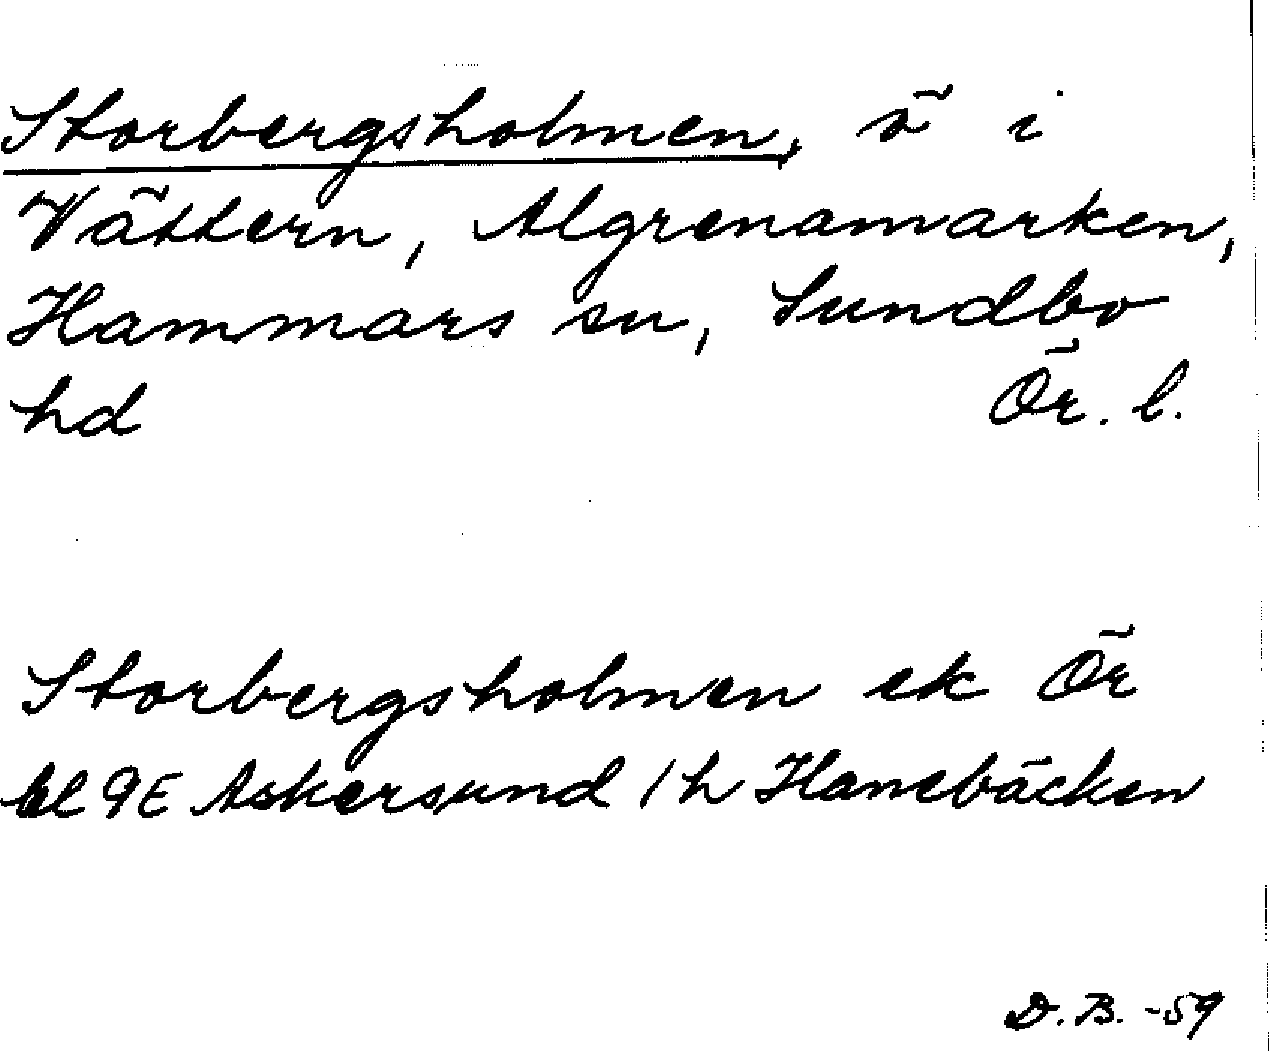 Storbergsholmen, ö i
Vättern, Algrenamarken,
Hammars sn, Sundbo
hd Ör. l.
Storbergsholmen ek Ör
bl 9E Askersund 1h Hanebäcken
D.B. -59